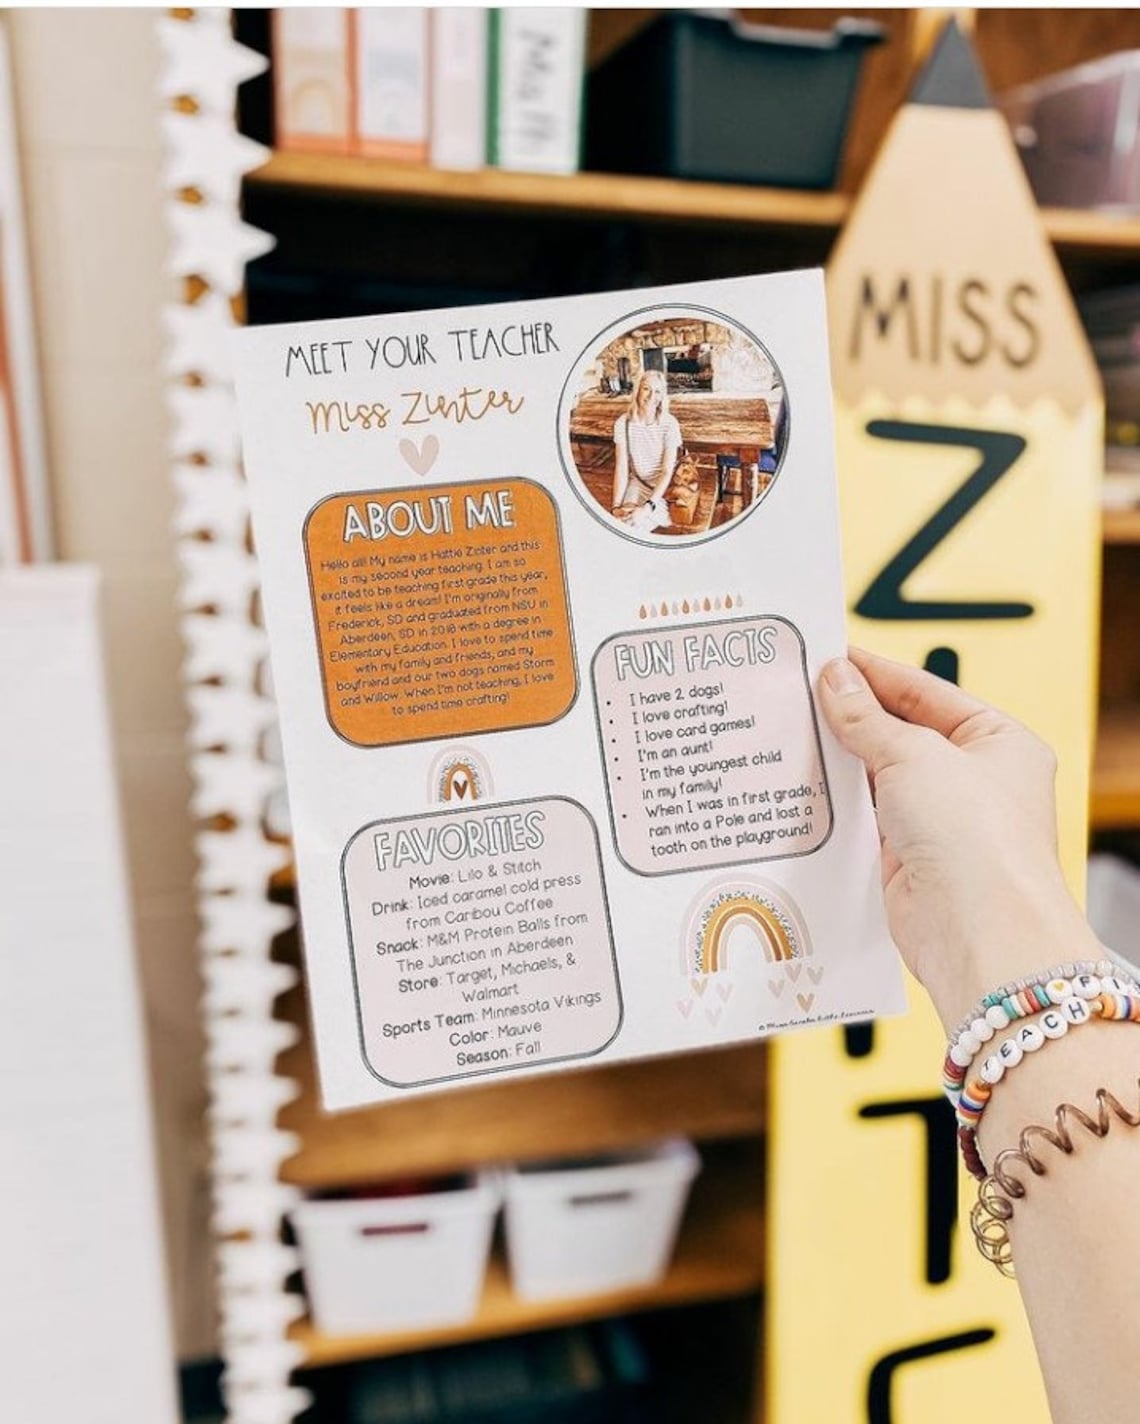 Math
MISS
Z
T
MEET YOUR TEACHER
Miss Zinter
ABOUT ME
Hello all! My name is Hattie Zinter and this
is my second year teaching. I am so
excited to be teaching first grade this year,
it feels like a dream! I'm originally from
Frederick, SD and graduated from NSU in
Aberdeen, SD in 2018 with a degree in
Elementary Education. I love to spend time
with my family and friends, and my
boyfriend and our two dogs named Storm
and Willow. When I'm not teaching, I love
to spend time crafting!
FAVORITES
Movie: Lilo & Stitch
Drink: Iced caramel cold press
from Caribou Coffee
Snack: M&M Protein Balls from
The Junction in Aberdeen
Store: Target, Michaels, &
Walmart
Sports Team: Minnesota Vikings
Color: Mauve
Season: Fall
FUN FACTS
• I have 2 dogs!
• I love crafting!
• I love card games!
• I'm an aunt!
• I'm the youngest child
in my family!
• When I was in first grade, I
ran into a Pole and lost a
tooth on the playground!
FI
TEACH